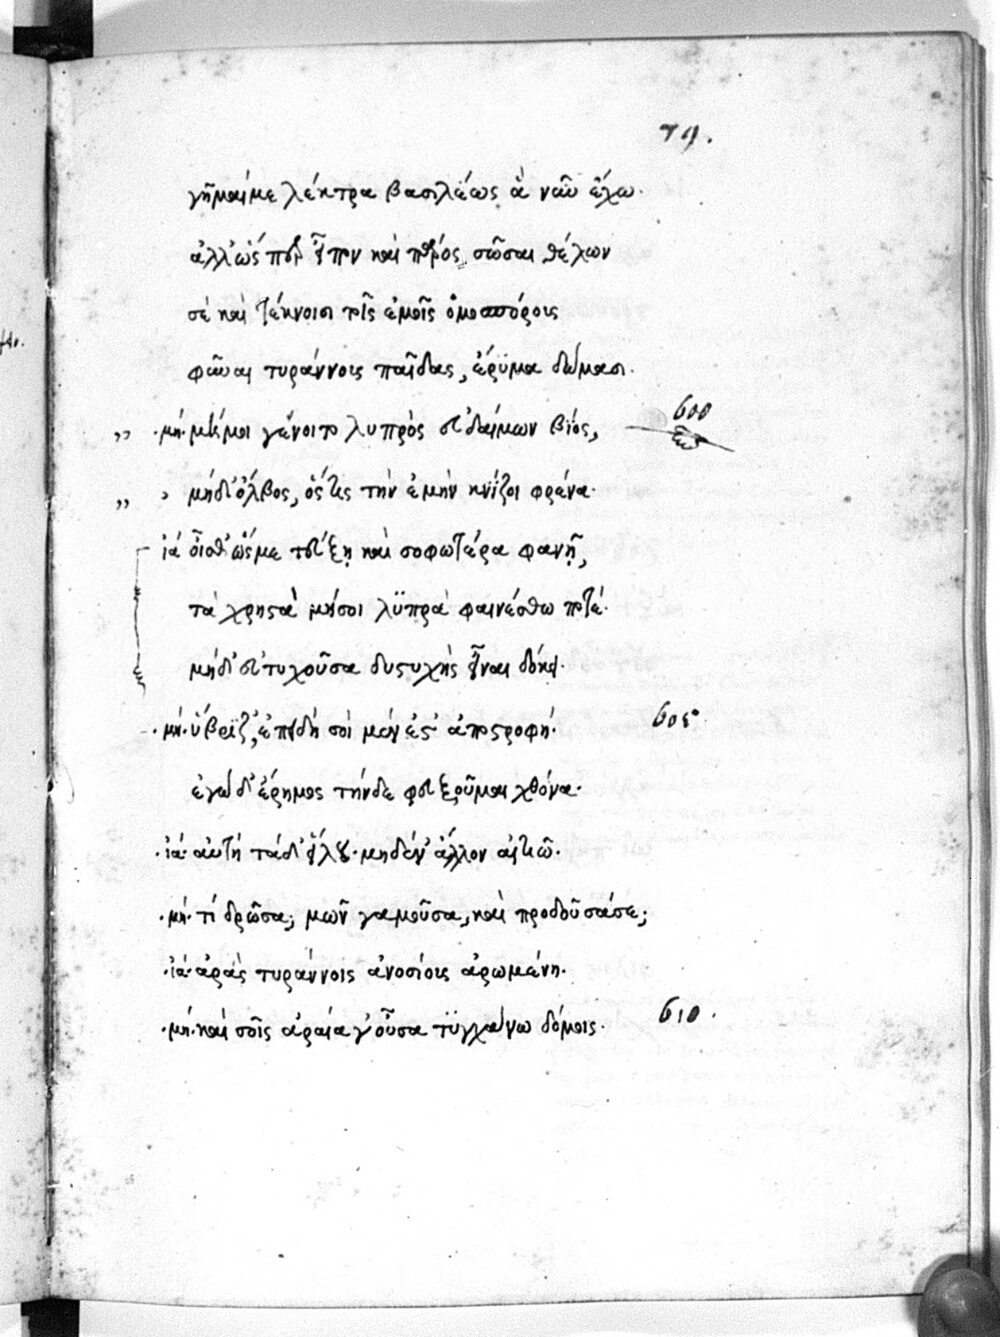 79.
γῆμαί με λέκτρα βασιλέως ἃ νῦν ἔχω·
ἀλλ' ὥσπερ εἶπον καὶ πάρος, σῶσαι θέλων
σὲ καὶ τέκνοισι τοῖς ἐμοῖς ὁμοσπόρους
φῦναι τυράννους παῖδας, ἔρυμα δώμασι.
,, ·μή· μή μοι γένοιτο λυπρὸς εὐδαίμων βίος, 600
,, μηδ' ὄλβος, ὅςτις τὴν ἐμὴν κνίζοι φρένα·
ἰά οἶσθ' ὥς με τεύξῃ καὶ σοφωτέρα φανῇ,
τὰ χρηστὰ μή σοι λϋπρὰ φαινέσθω ποτέ·
μηδ' εὐτυχοῦσα δυςτυχὴς εἶναι δόκει·
·μή· ὕβριζ', ἐπειδὴ σοὶ μέν ἐστ' ἀποστροφή· 605·
ἐγὼ δ' ἔρημος τήνδε φευξοῦμαι χθόνα·
·ἰά· αὐτὴ τάδ' εἵλου· μηδέν' ἄλλον αἰτιῶ·
·μή· τί δρῶσα; μῶν γαμοῦσα, καὶ προδοῦσά σε;
·ἰά· ἀρὰς τυράννοις ἀνοσίους ἀρωμένη·
·μή· καὶ σοῖς ἀραία γ' οὖσα τυγχάνω δόμοις· 610·